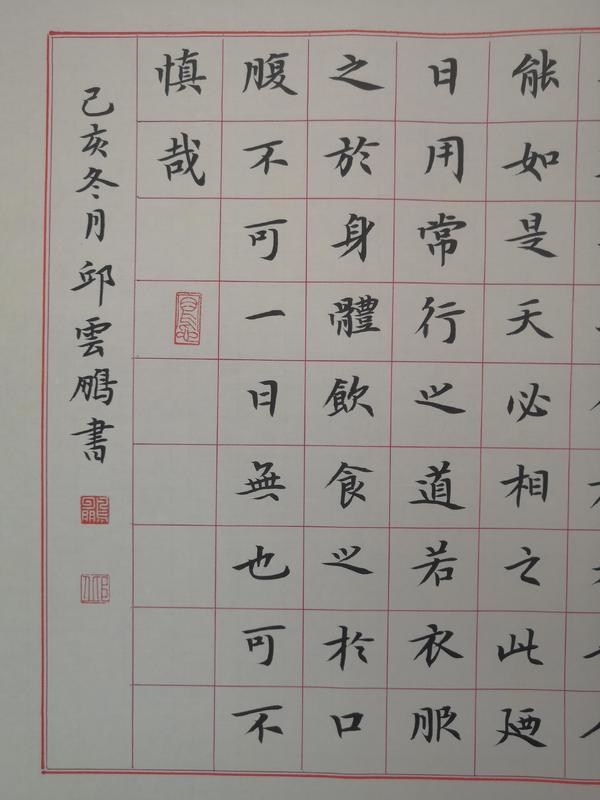 能如是天必相之此廼
日用常行之道若衣服
之於身體飲食之於口
腹不可一日無也可不
慎哉
己亥冬月邱雲鵬書